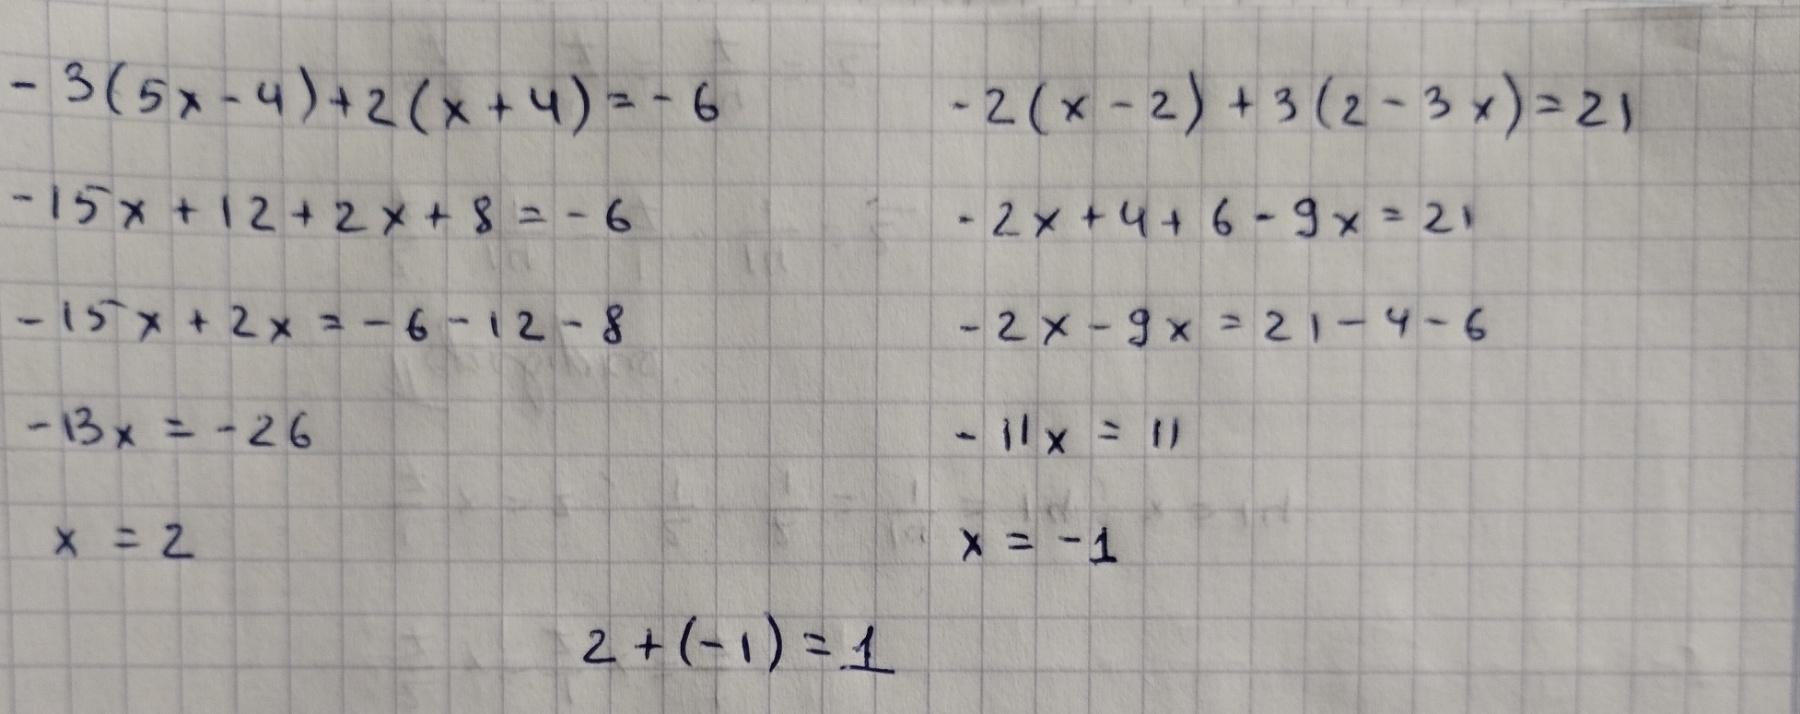 -3(5x-4)+2(x+4)=-6
-15x+12+2x+8=-6
-15x+2x=-6-12-8
-13x=-26
x=2
-2(x-2)+3(2-3x)=21
-2x+4+6-9x=21
-2x-9x=21-4-6
-11x=11
x=-1
2+(-1)=1